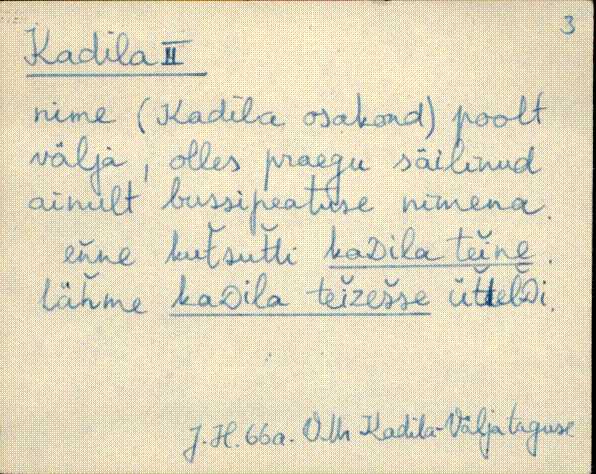 3
Kadila II
nime (Kadila osakond) poolt
välja, olles praegu säilinud
ainult bussipeatuse nimena.
eňne kuťsuťti kaDila teǐne.
lähme kaDila teǐzešse üťtelDi.
J. H. 66a. V.Mr Kadila-Väljataguse